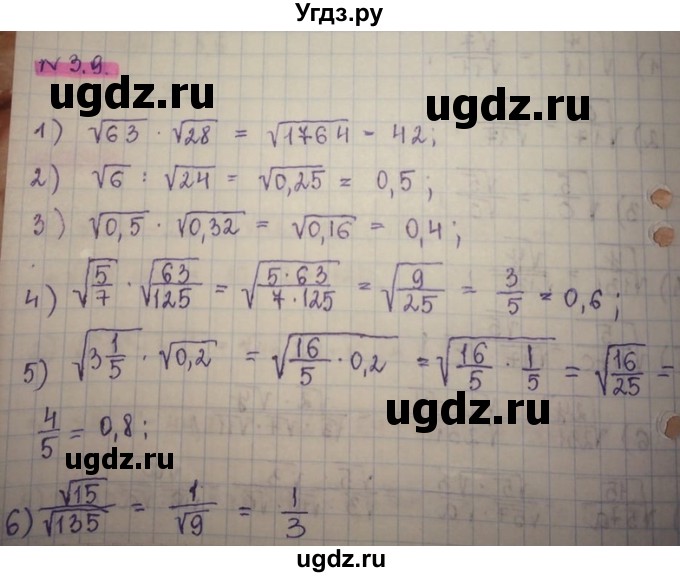 Угдз.ру
N 3.9.
ugdz.ru ugdz.ru
1) √63 · √28 = √1764 = 42;
2) √6 : √24 = √0,25 = 0,5;
3) √0,5 · √0,32 = √0,16 = 0,4;
ugdz.ru ugdz.ru
4) √(5/7) · √(63/125) = √((5·63)/(7·125)) = √(9/25) = 3/5 = 0,6;
5) √(3 1/5) · √0,2 = √(16/5 · 0,2) = √(16/5 · 1/5) = √(16/25) =
ugdz.ru
4/5 = 0,8;
ugdz.ru
6) √15/√135 = 1/√9 = 1/3
ugdz.ru